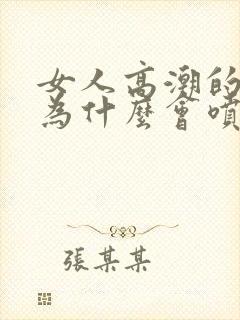 女人高潮的
為什麼會噴
張某某